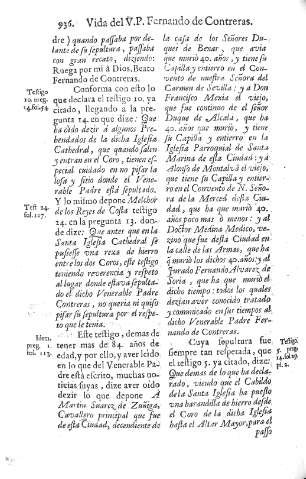 936. Vida del V.P. Fernando de Contreras.
dre) quando passaba por de-
lante de su sepultura, passaba
con gran recato, diziendo:
Ruega por mi à Dios, Beato
Fernando de Contreras.
Conforma con esto lo
que declara el testigo 10. ya
citado, llegando à la pre-
gunta 14. en que dize: Que
ha oido dezir à algunos Pre-
bendados de la dicha Iglesia
Cathedral, que quando salen
y entran en el Coro, tienen es-
pecial cuidado en no pisar la
losa y sitio donde el Vene-
rable Padre està sepultado.
Y lo mismo depone Melchor
de los Reyes de Costa testigo
24. en la pregunta 13. don-
de dize: Que antes que en la
Santa Iglesia Cathedral se
pusiesse una rexa de hierro
entre los dos Coros, este testigo
teniendo reverencia y respeto
al lugar donde estava sepulta-
do el dicho Venerable Padre
Contreras, no queria ni quiso
pisar su sepultura por el respe-
to que le tenia.
Este testigo, demas de
tener mas de 84. años de
edad, y por ello, y aver leido
en lo que del Venerable Pa-
dre està escrito, muchas no-
ticias suyas, dize aver oido
dezir lo que depone A
Martin Suarez de Zuñiga,
Cavallero principal que fue
de està Ciudad, decendiente de
Testigo
10. preg.
14. fol. 54.
Test. 24.
fol. 127.
Idem,
preg. 1.
fol. 113.
la casa de los Señores Du-
ques de Benar, que avia
que murió 40. años, y tiene su
Capilla y entierro en el Con-
vento de nuestra Señora del
Carmen de Sevilla: y à Don
Francisco Mexia el viejo,
que fue continuo de el señor
Duque de Alcala, que ha
40. años que murió, y tiene
su Capilla y entierro en la
Iglesia Parroquial de Santa
Marina de esta Ciudad: y à
Alonso de Montalvo el viejo,
que tiene su Capilla y entier-
ro en el Convento de N. Seño-
ra de la Merced desta Ciu-
dad, que ha que murió 40.
años poco mas ò menos: y al
Doctor Medina Medico, ve-
zino que fue desta Ciudad en
la calle de las Armas, que ha
q murió los dichos 40. años: y al
Jurado Fernando Alvarez de
Soria, que ha que murió los
dichos tiempo: todos los quales
dezian aver conocido tratado
y comunicado en sus tiempos al
dicho Venerable Padre Fer-
nando de Contreras.
Cuya sepultura fue
siempre tan respetada, que
el testigo 5. ya citado, dize:
Que demas de lo que ha decla-
rado, viendo que el Cabildo
de la Santa Iglesia ha puesto
una barandilla de hierro desde
el Coro de la dicha Iglesia
hasta el Altar Mayor, para el
passo
Testigo
5. preg.
14. fol. 29.
pl. 2.